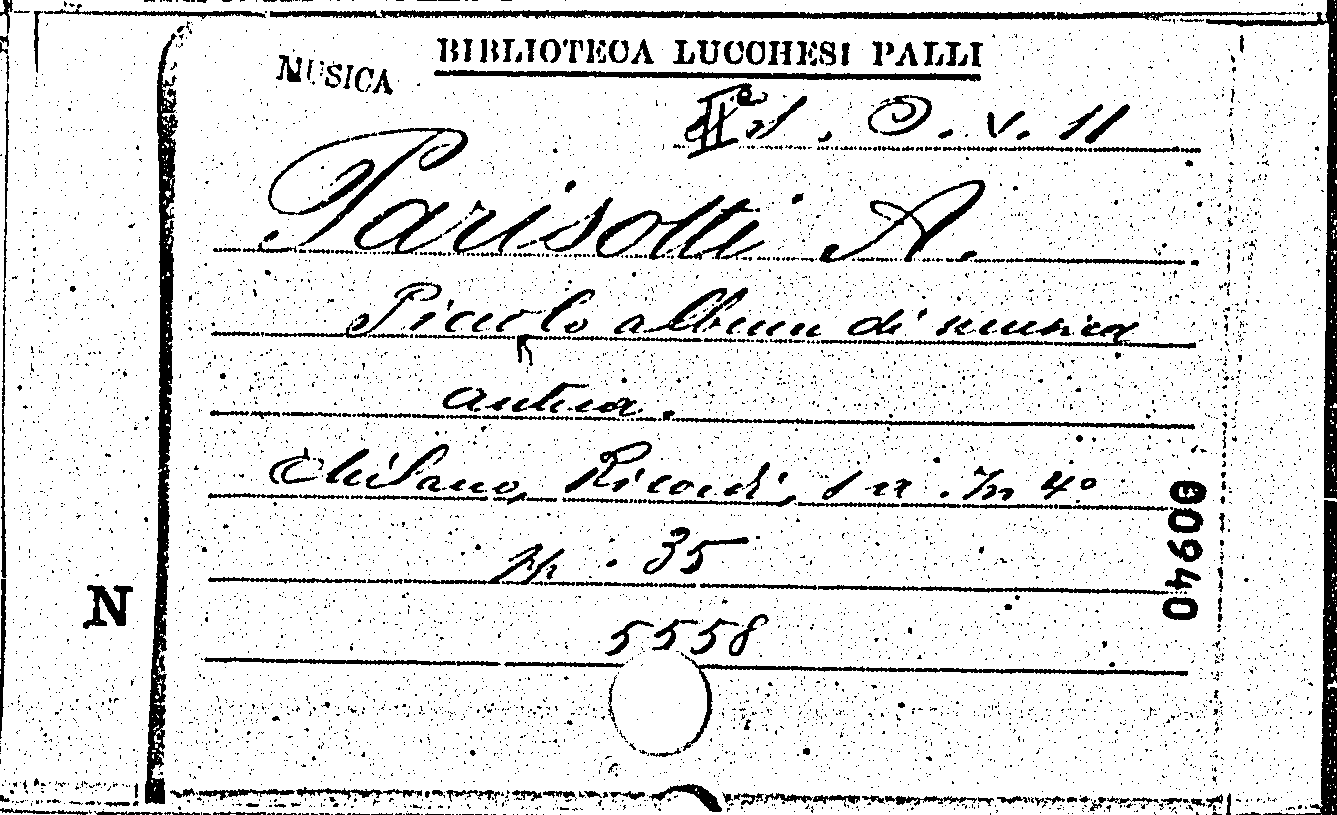 BIBLIOTECA LUCCHESI PALLI
MUSICA
O. V. 11
Parisotti A.
Piccolo album di musica
antica.
Milano, Ricordi, s a. In 4º
pp. 35
5558
00940
N